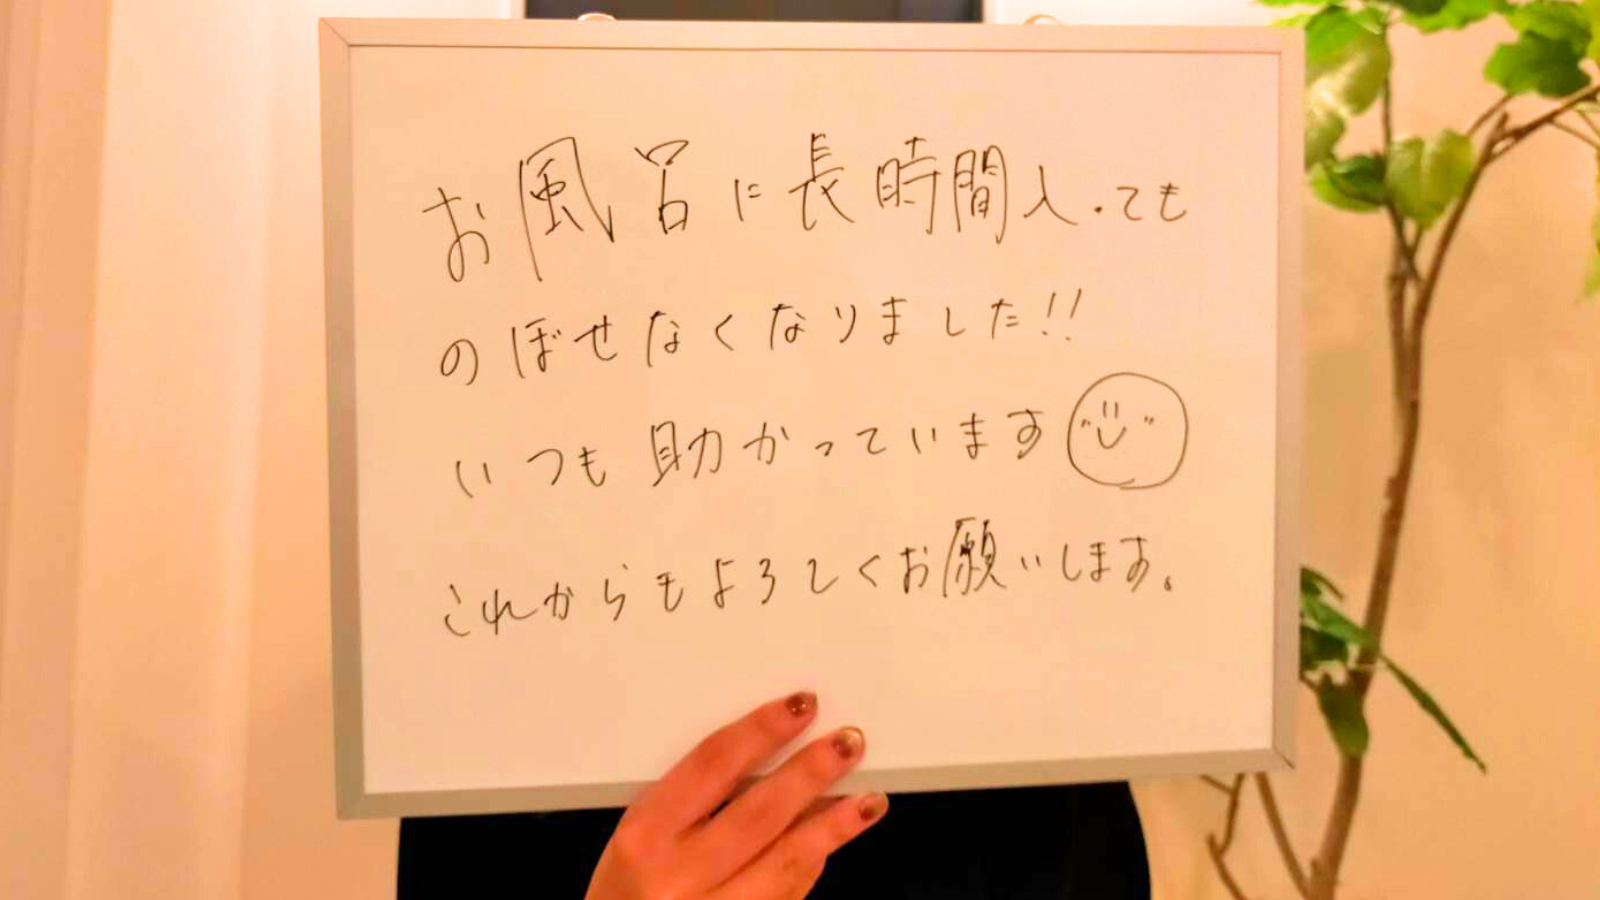 お風呂に長時間入っても
のぼせなくなりました!!
いつも助かっています
これからもよろしくお願いします。